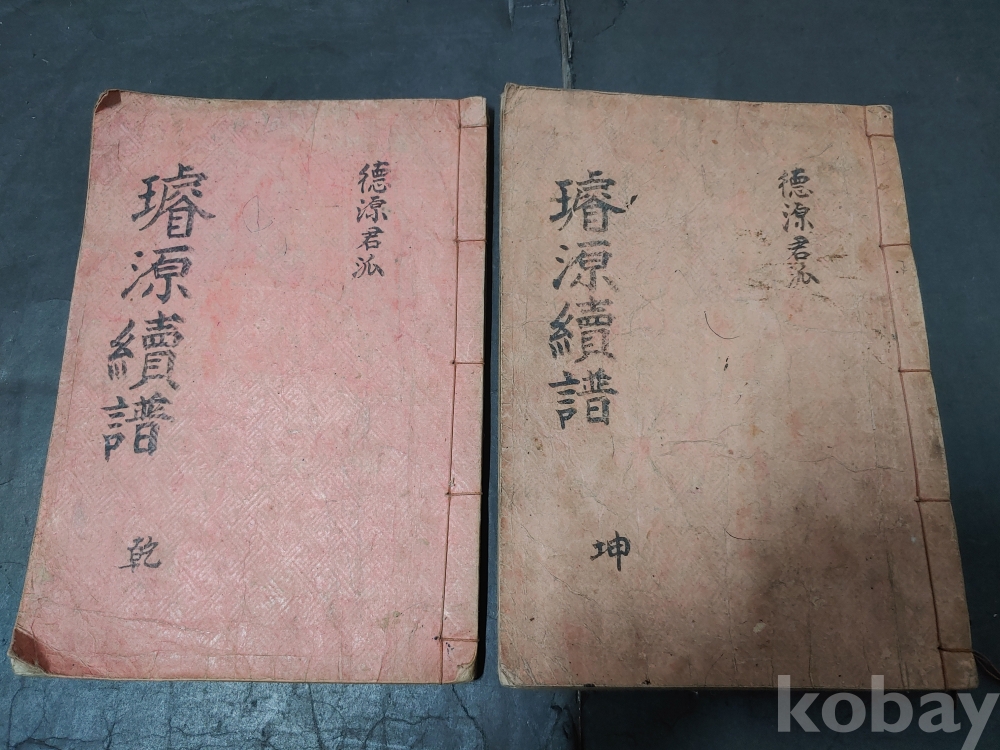 德源君派
璿源續譜
乾
德源君派
璿源續譜
坤
kobay